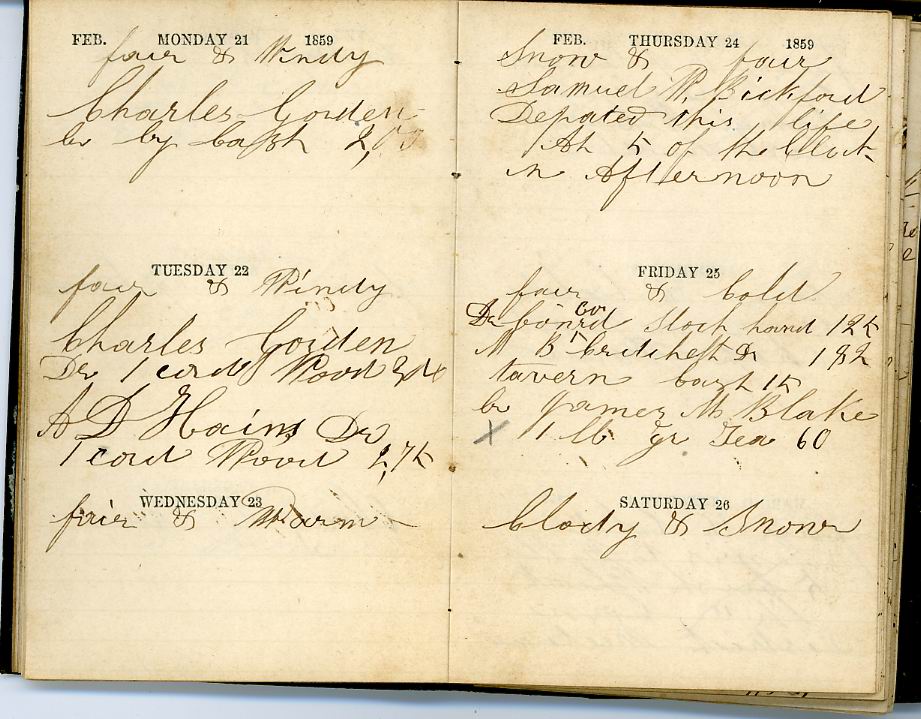 FEB. MONDAY 21 1859
fair & Windy
Charles Gorden
br by Cash 2,
TUESDAY 22
fair & Windy
Charles Gorden
Dr 1 cord Wood
A D Hains Dr
1 cord Wood 2,75
WEDNESDAY 23
fair & Warm
FEB. THURSDAY 24 1859
Snow & fair
Samuel W. Bickford
Depated this life
At 5 of the Clock
in Afternoon
FRIDAY 25
fair & Cold
Dr Stock hand 125
M B Critchett Dr 182
tavern cash 15
Cr James M Blake
X 1 lb gr Tea 60
SATURDAY 26
Clody & Snow